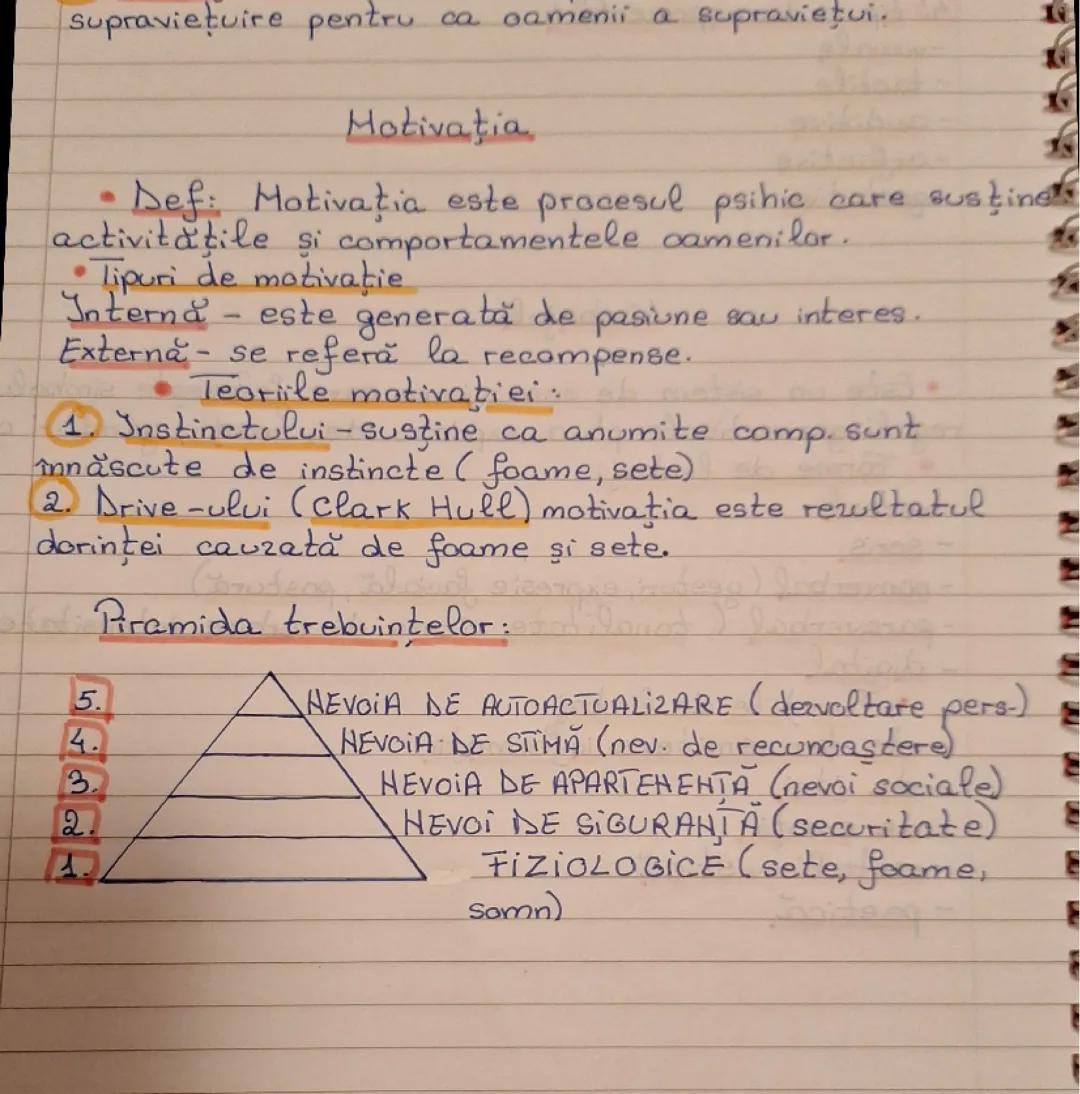 supraviețuire pentru ca oamenii a supraviețui.
Motivația
• Def: Motivația este procesul psihic care susține
activitățile și comportamentele oamenilor.
• Tipuri de motivație
Internă - este generată de pasiune sau interes.
Externă - se referă la recompense.
• Teoriile motivației:
1. Instinctului - susține ca anumite comp. sunt
înnăscute de instincte (foame, sete)
2. Drive-ului (Clark Hull) motivația este rezultatul
dorinței cauzată de foame și sete.
Piramida trebuințelor:
5. NEVOIA DE AUTOACTUALIZARE (dezvoltare pers.)
4. NEVOIA DE STIMĂ (nev. de recunoaștere)
3. NEVOIA DE APARTENENȚĂ (nevoi sociale)
2. NEVOI DE SIGURANȚĂ (securitate)
1. FIZIOLOGICE (sete, foame,
somn)